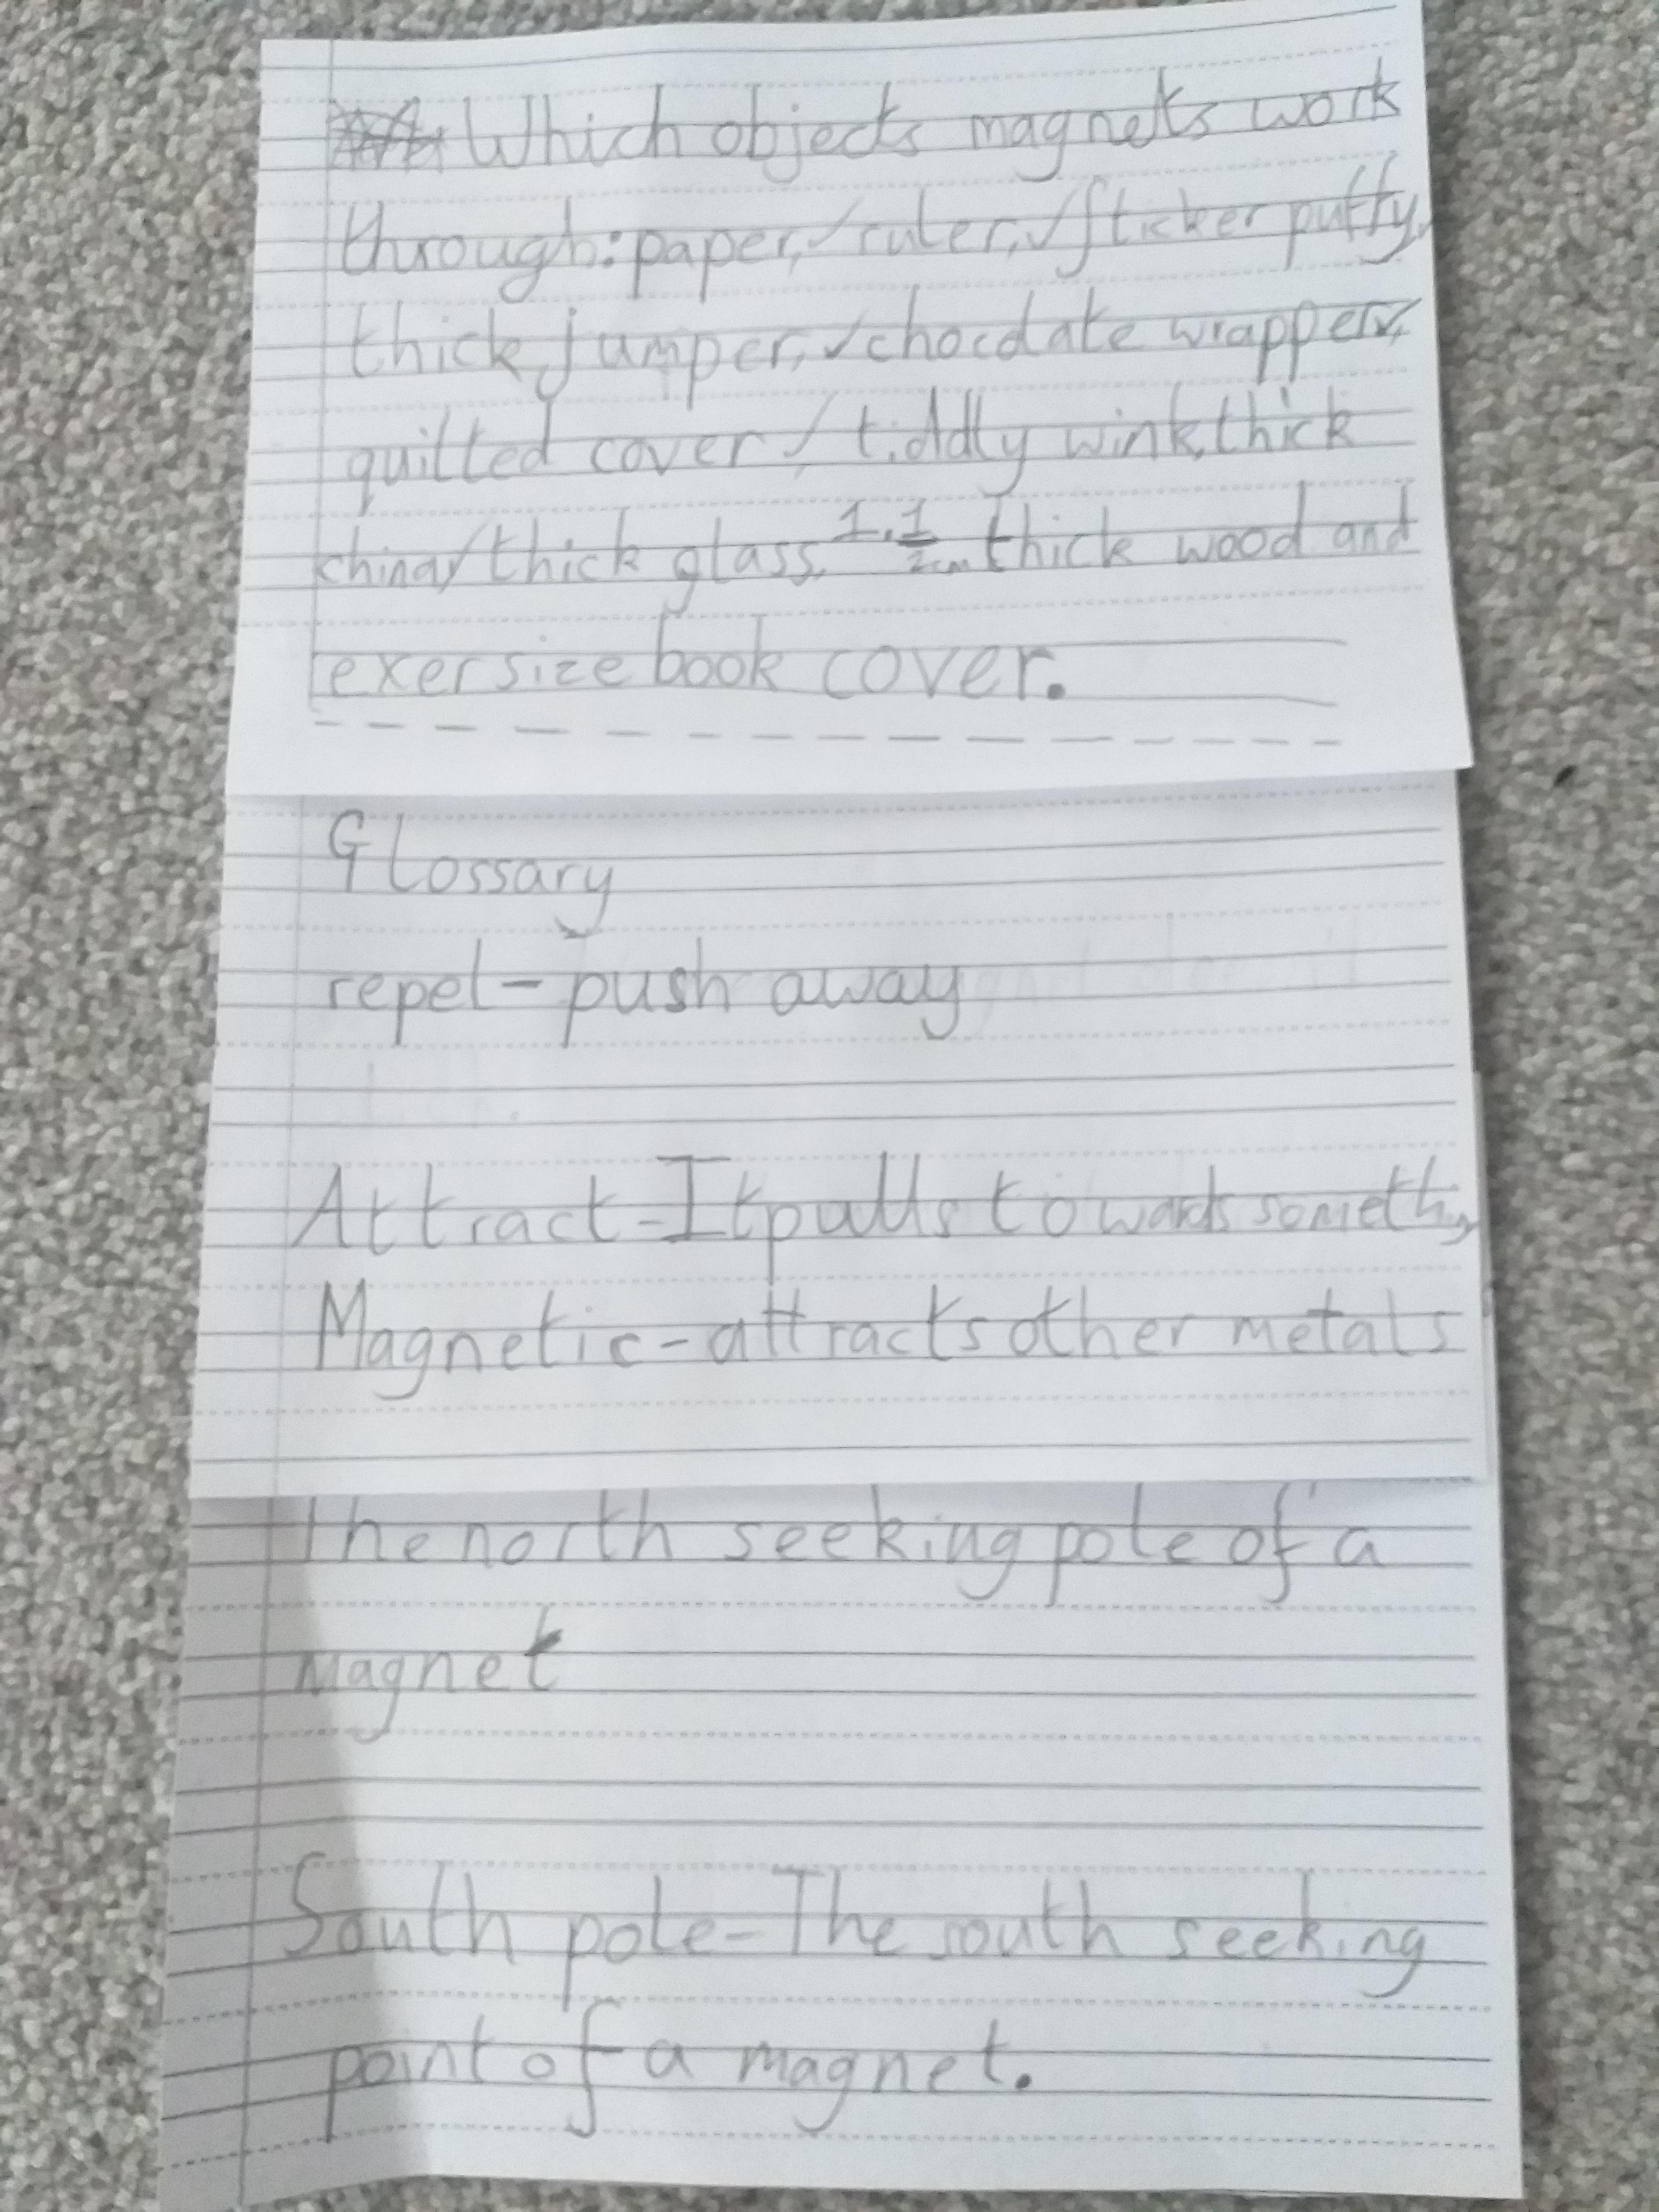 Which objects magnets work
through: paper, ✓ ruler, ✓ sticker putty,
thick jumper, ✓ chocolate wrapper ✓,
quilted cover ✓, tiddly wink, thick
china ✓, thick glass, 1.1/2cm thick wood and
exersize book cover.
Glossary
repel - push away
Attract - It pulls towards someth
Magnetic - attracts other metals
The north seeking pole of a
magnet
South pole - The south seeking
point of a magnet.